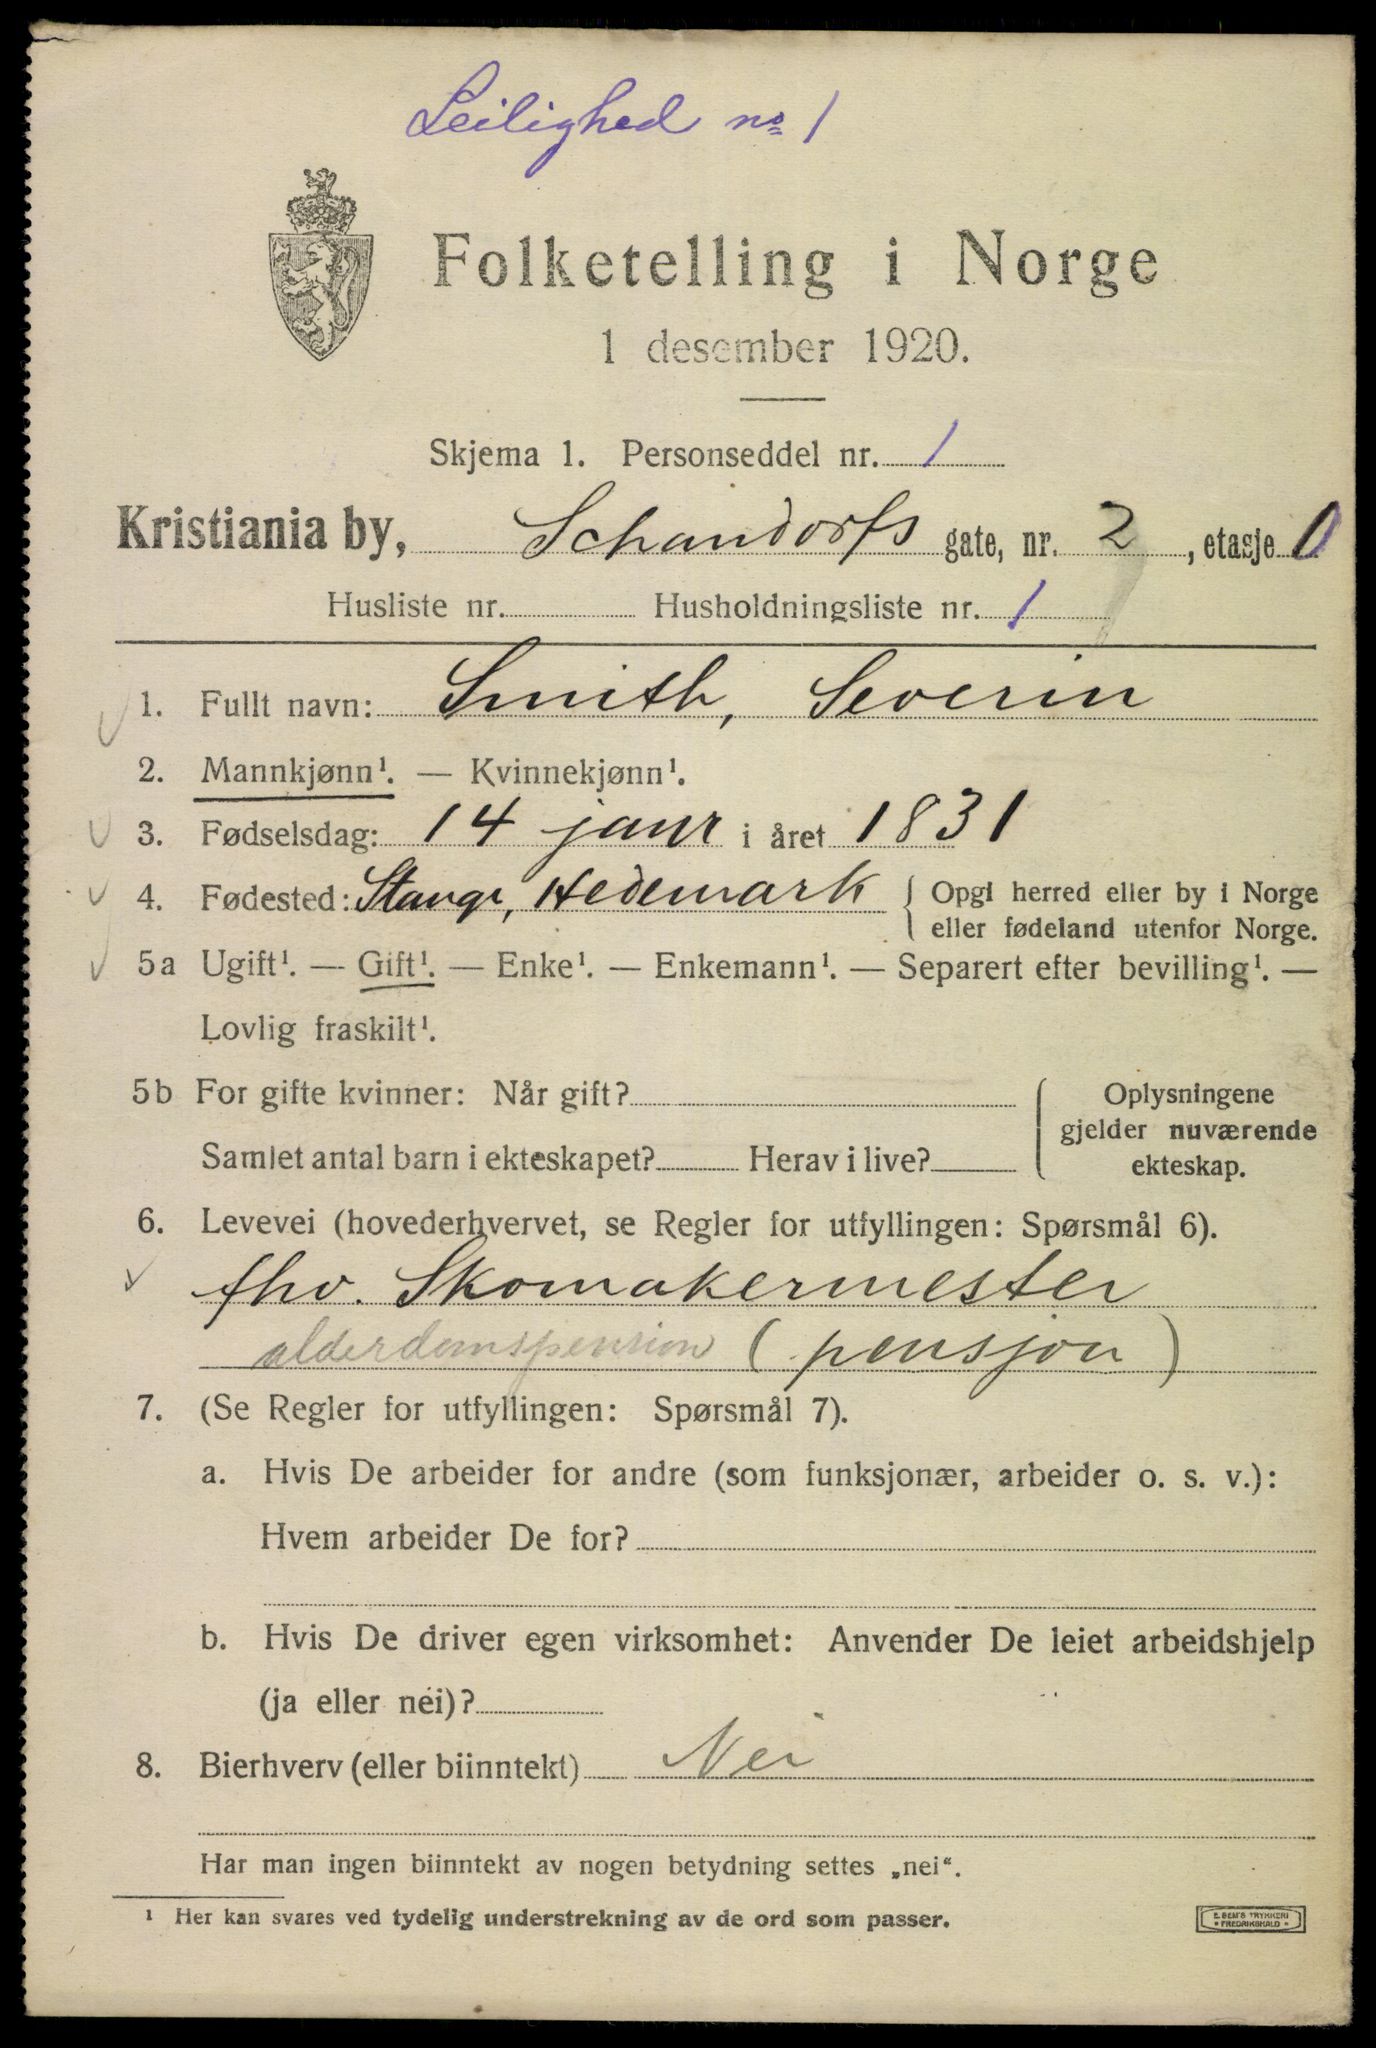 Leilighed no 1
Folketelling i Norge
1 desember 1920.
Skjema 1. Personseddel nr. 1
Kristiania by, Schandorfs gate, nr. 2, etasje 0
Husliste nr. Husholdningsliste nr. 1
1. Fullt navn: Smith, Severin
2. Mannkjønn¹. — Kvinnekjønn¹.
3. Fødselsdag: 14 janr i året 1831
4. Fødested: Stange, Hedemark { Opgi herred eller by i Norge
eller fødeland utenfor Norge.
5a Ugift¹. — Gift¹. — Enke¹. — Enkemann¹. — Separert efter bevilling¹. —
Lovlig fraskilt¹.
5b For gifte kvinner: Når gift? { Oplysningene
gjelder nuværende
Samlet antal barn i ekteskapet? Herav i live? ekteskap.
6. Levevei (hovederhvervet, se Regler for utfyllingen: Spørsmål 6).
fhv. Skomakermester
alderdomspension (pensjon)
7. (Se Regler for utfyllingen: Spørsmål 7).
a. Hvis De arbeider for andre (som funksjonær, arbeider o. s. v.):
Hvem arbeider De for?
b. Hvis De driver egen virksomhet: Anvender De leiet arbeidshjelp
(ja eller nei)?
8. Bierhverv (eller biinntekt) Nei
Har man ingen biinntekt av nogen betydning settes „nei“.
¹ Her kan svares ved tydelig understrekning av de ord som passer.
E. SEM'S TRYKKERI
• FREDRIKSHALD •